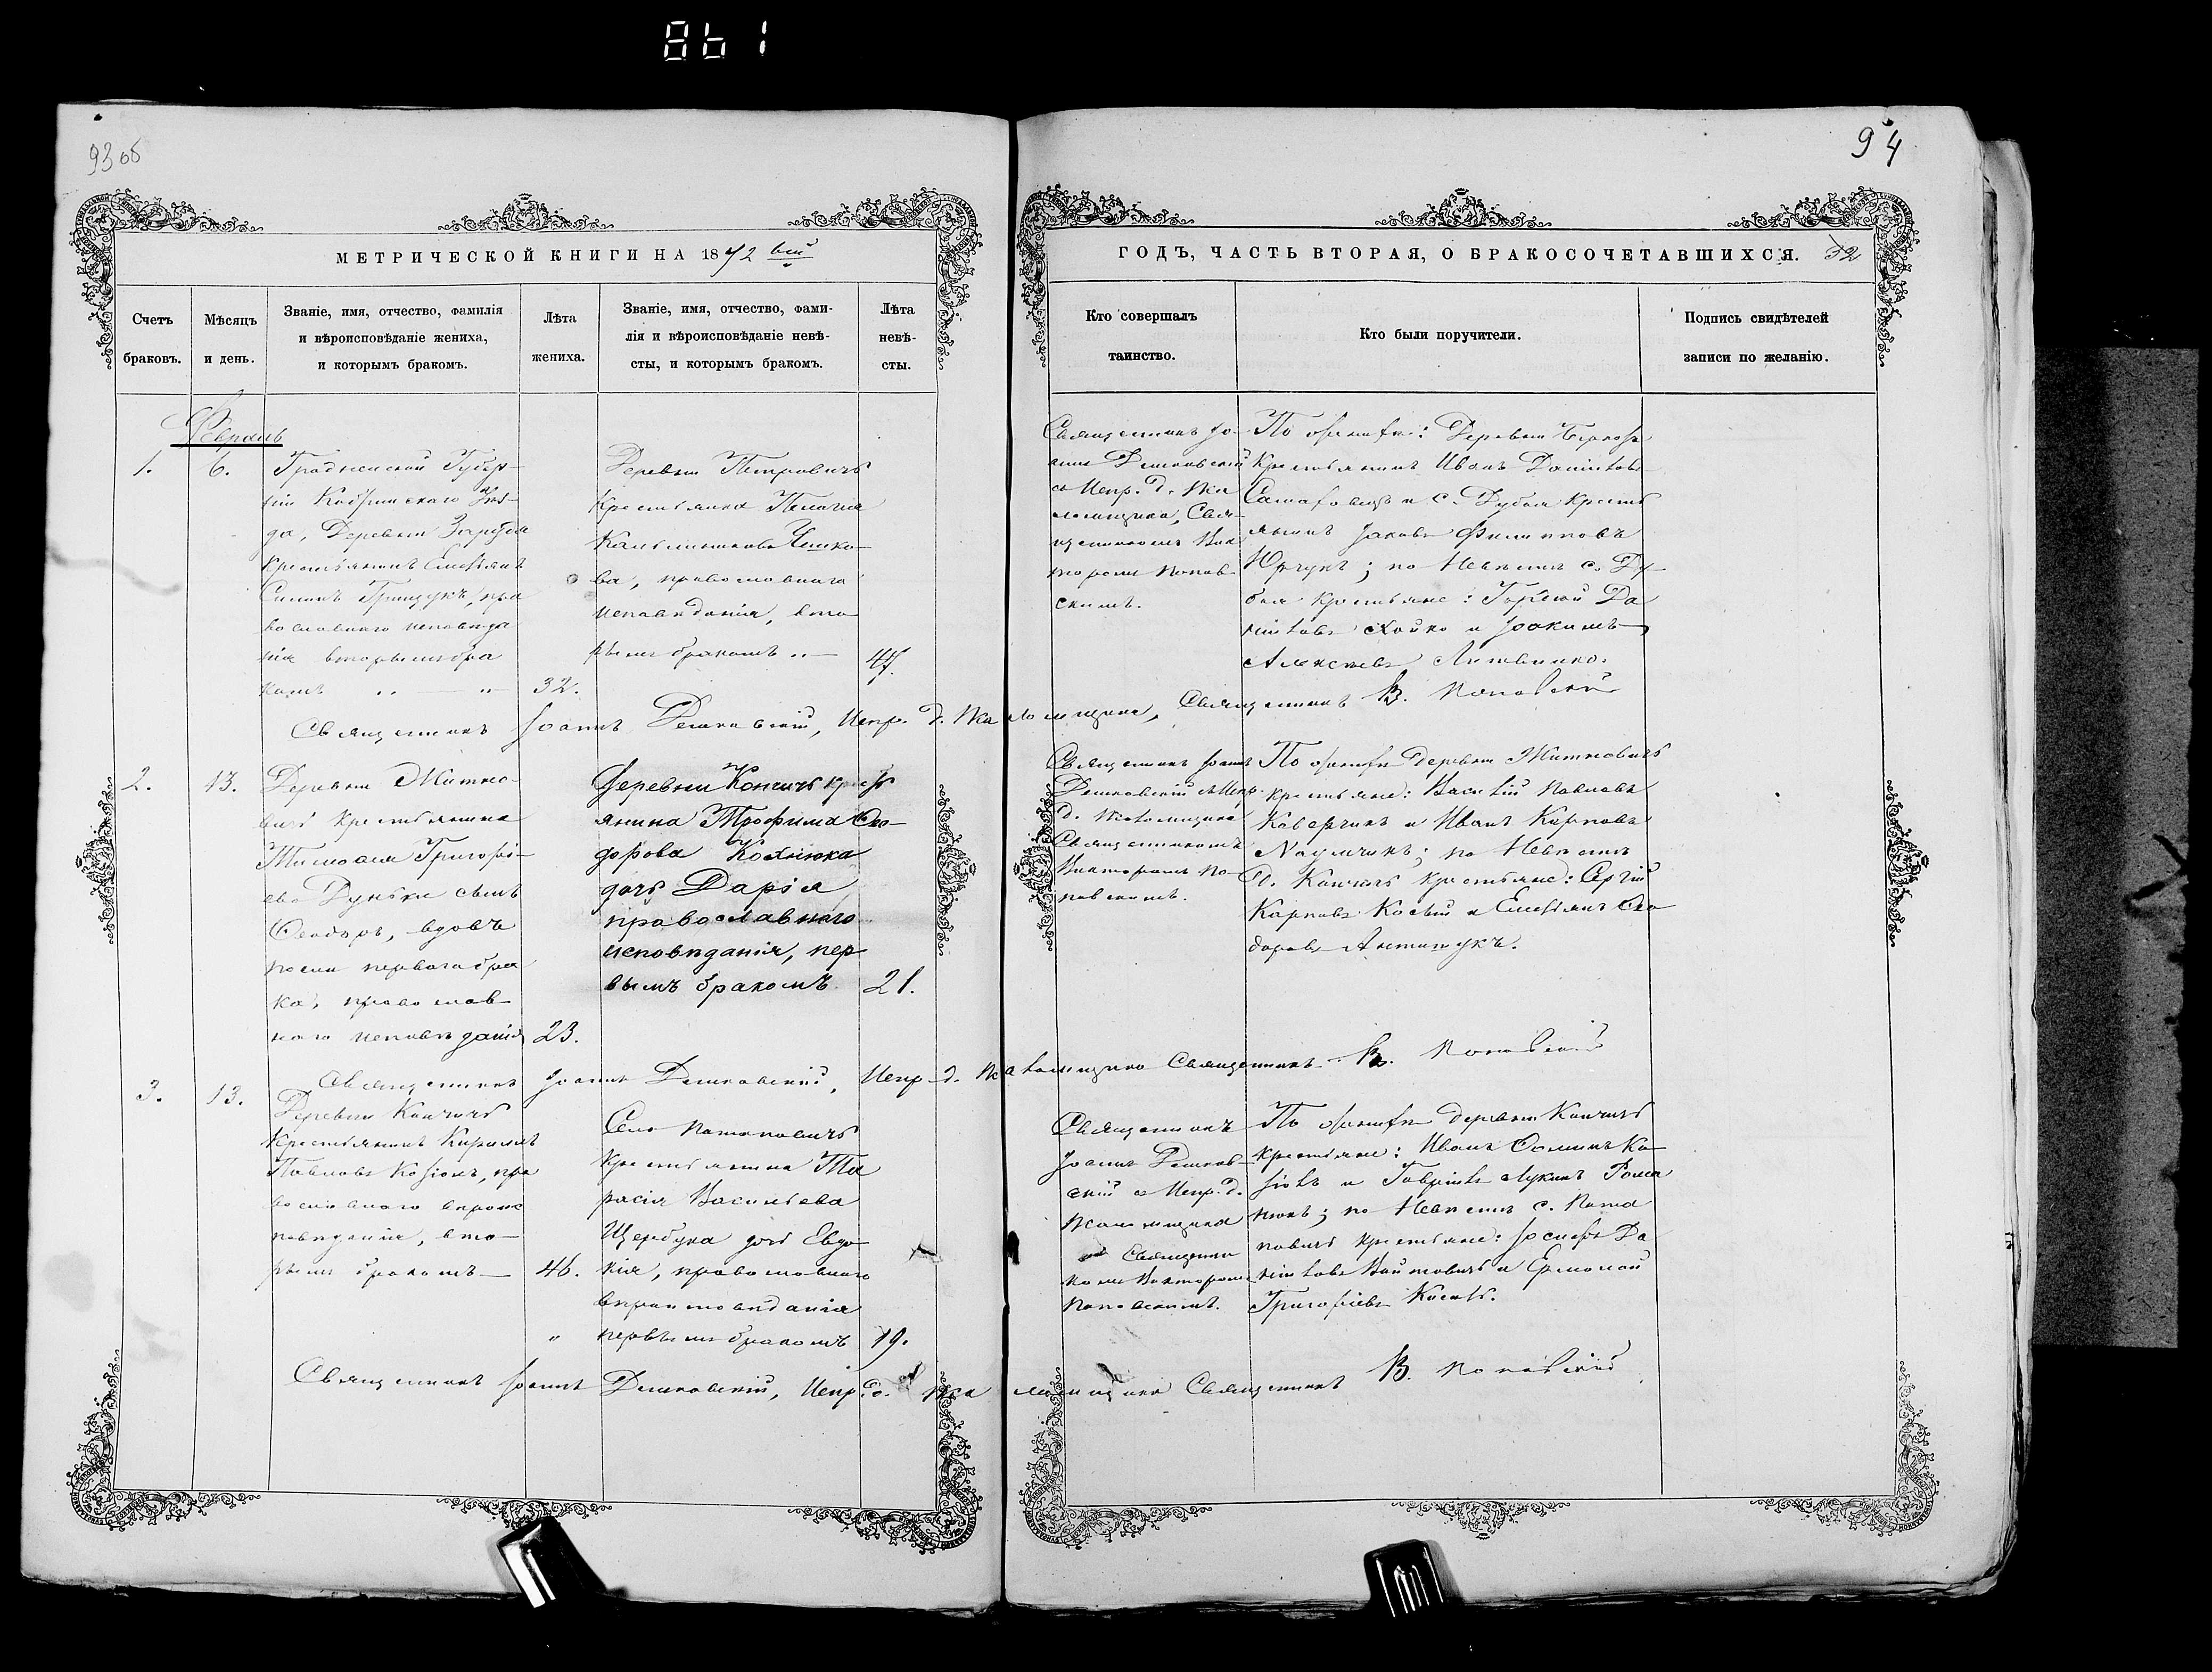 861
93 об
94
МЕТРИЧЕСКОЙ КНИГИ НА 1872 вый
ГОДЪ, ЧАСТЬ ВТОРАЯ, О БРАКОСОЧЕТАВШИХСЯ. 32
Счетъ
браковъ.
Мѣсяцъ
и день.
Званіе, имя, отчество, фамилія
и вѣроисповѣданіе жениха,
и которымъ бракомъ.
Лѣта
жениха.
Званіе, имя, отчество, фами-
лія и вѣроисповѣданіе невѣ-
сты, и которымъ бракомъ.
Лѣта
невѣ-
сты.
Кто совершалъ
таинство.
Кто были поручители.
Подпись свидѣтелей
записи по желанію.
Февраль
1.
6.
Гродненской Губер-
ніи Кобринскаго Уѣз-
да, Деревни
крестьянинъ Емельянъ
Грицукъ, пра
вославнаго исповѣда
нія вторымъ бра
комъ
32.
Деревни Петровичъ
крестьянка Пелагія
ва, православнаго
исповѣданія, вто
рымъ бракомъ
47.
Священникъ Іо-
аннъ Дешковскій
съ Испр. д. Пса
ломщика, Свя-
щенникомъ Вик
торомъ Попов-
скимъ.
По женихѣ: Деревни
крестьянинъ Иванъ Даніиловъ
и с. Дубоя кресть
янинъ Іаковъ Филипповъ
Юрчукъ; по Невѣстѣ с. Ду-
боя крестьяне: Да
ніиловъ Хойко и Іоакимъ
Алексѣевъ Литвинко.
Священникъ Іоаннъ Дешковскій, Испр. д. Псаломщика, Священникъ В. Поповскій
2.
13.
Деревни Житно-
вичъ крестьянина
Тимоѳея Григорі-
ева Дуньки сынъ
Ѳеодоръ, вдовъ
послѣ перваго бра
ка, православ-
наго исповѣданія
23.
Деревни Кончичъ кресть
янина Трофима Ѳео-
дорова
дочь Дарія,
православнаго
исповѣданія, пер
вымъ бракомъ
21.
Священникъ Іоаннъ
Дешковскій съ Испр.
д. Псаломщика
Священникомъ
Викторомъ По-
повскимъ.
По женихѣ деревни Житновичъ
крестьяне: Василій Павловъ
и Иванъ Карповъ
Наумчикъ; по Невѣстѣ
д. Кончичъ крестьяне: Сергій
Карповъ и Емельянъ Ѳео
доровъ
Священникъ Іоаннъ Дешковскій, Испр. д. Псаломщика Священникъ В. Поповскій
3.
13.
Деревни Кончичъ
крестьянинъ Кириллъ
Павловъ Козіолъ, пра
вославнаго вѣроис
повѣданія, вто-
рымъ бракомъ
46.
Села Потаповичъ
крестьянина Та
расія Васильева
Щербука дочь Евдо-
кія, православнаго
вѣроисповѣданія
первымъ бракомъ
19.
Священникъ
Іоаннъ Дешков-
скій съ Испр. д.
Псаломщика
Священни
комъ Викторомъ
Поповскимъ.
По женихѣ деревни Кончичъ
крестьяне: Иванъ Ѳоминъ Ко-
зіолъ и Гавріилъ Лукинъ Рома
нюкъ; по Невѣстѣ с. Пота
повичъ крестьяне: Іосифъ Да
ніиловъ Войтовичъ и Ермолай
Григорьевъ
Священникъ Іоаннъ Дешковскій, Испр. д. Псаломщика Священникъ В. Поповскій